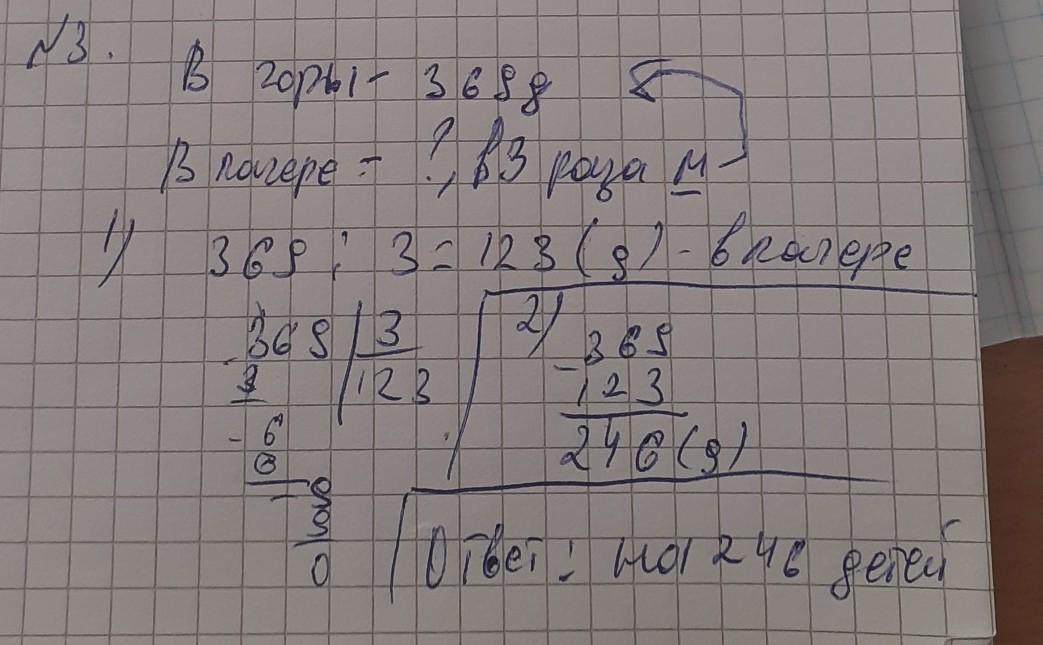 №3.
В горы - 369 д
В лагере - ?, в 3 раза м
1) 369 : 3 = 123 (д) - в лагере
369 | 3
3 | 123
- 6
6
- 9
9
0
2) - 369
123
246 (д)
Ответ: на 246 детей